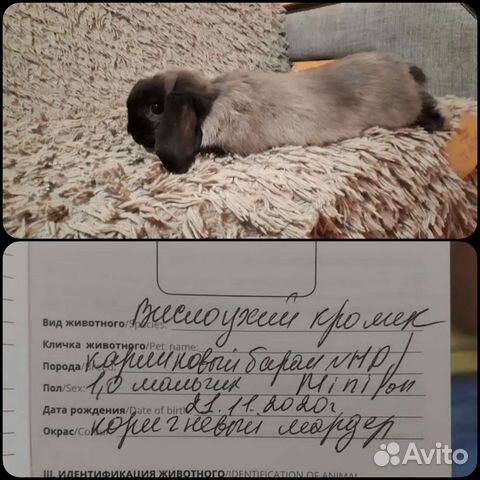 Вид животного/Species: Вислоухий кролик
Кличка животного/Pet name:
Порода/Breed: карликовый баран NHD/
Пол/Sex: 1,0 мальчик Minilop
Дата рождения/Date of birth 21.11.2020г
Окрас/Colour коричневый мардер
III. ИДЕНТИФИКАЦИЯ ЖИВОТНОГО/IDENTIFICATION OF ANIMAL
Avito